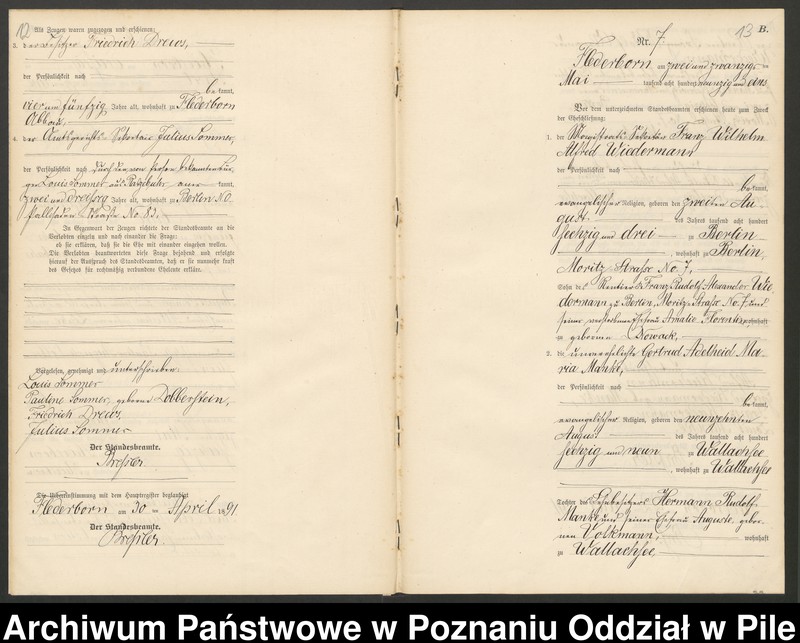 12
Als Zeugen waren zugezogen und erschienen:
3. der Besitzer Friedrich Drews,
der Persönlichkeit nach
be kannt,
vier und fünfzig Jahre alt, wohnhaft zu Flederborn
Abbau.
4. der Amtsgerichts-Sekretair Julius Sommer,
der Persönlichkeit nach durch den
Louis Sommer aus kannt,
zwei und dreißig Jahre alt, wohnhaft zu Berlin NO
Pallisaden Straße No 82.
In Gegenwart der Zeugen richtete der Standesbeamte an die
Verlobten einzeln und nach einander die Frage:
ob sie erklären, daß sie die Ehe mit einander eingehen wollen.
Die Verlobten beantworteten diese Frage bejahend und erfolgte
hierauf der Ausspruch des Standesbeamten, daß er sie nunmehr kraft
des Gesetzes für rechtmäßig verbundene Eheleute erkläre.
Vorgelesen, genehmigt und unterschrieben
Louis Sommer
Pauline Sommer, geborene Dobberstein,
Friedrich Drews,
Julius Sommer
Der Standesbeamte.
Die Uebereinstimmung mit dem Hauptregister beglaubigt
Flederborn am 30 ten April 1891
Der Standesbeamte.
13
B.
Nr. 7
Flederborn am zwei und zwanzigsten
Mai tausend acht hundert neunzig und eins
Vor dem unterzeichneten Standesbeamten erschienen heute zum Zweck
der Eheschließung:
1. der Magistrats Sekretär Franz Wilhelm
Alfred Wiedermann
der Persönlichkeit nach
be kannt,
evangelischer Religion, geboren den zweiten Au-
gust des Jahres tausend acht hundert
sechzig und drei zu Berlin
, wohnhaft zu Berlin,
Moritz-Straße No 7,
Sohn des Rentiers Franz Rudolf Alexander Wie-
dermann zu Berlin, Moritz-Straße No. 7 und
seiner verstorbenen Ehefrau Amalie Florentine wohnhaft
zu geborenen Nowack,
2. die unverehelichte Gertrud Adelheid Ma-
ria Manke,
der Persönlichkeit nach
be kannt,
evangelischer Religion, geboren den neunzehnten
August des Jahres tausend acht hundert
sechzig und neun zu Wallachsee
, wohnhaft zu Wallachsee
Tochter des Hermann Rudolf
Manke und seiner Ehefrau Auguste gebor-
nen Volkmann, wohnhaft
zu Wallachsee
Archiwum Państwowe w Poznaniu Oddział w Pile